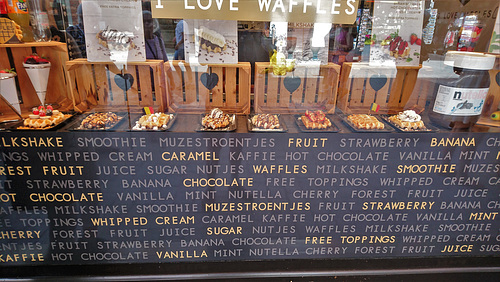 I LOVE WAFFLES
LKSHAKE SMOOTHIE MUZESTROENTJES FRUIT STRAWBERRY BANANA CH
NGS WHIPPED CREAM CARAMEL KAFFIE HOT CHOCOLATE VANILLA MINT
REST FRUIT JUICE SUGAR NUTJES WAFFLES MILKSHAKE SMOOTHIE MUZES
IT STRAWBERRY BANANA CHOCOLATE FREE TOPPINGS WHIPPED CREAM C
OT CHOCOLATE VANILLA MINT NUTELLA CHERRY FOREST FRUIT JUICE
AFFLES MILKSHAKE SMOOTHIE MUZESTROENTJES FRUIT STRAWBERRY BANANA CH
TOPPINGS WHIPPED CREAM CARAMEL KAFFIE HOT CHOCOLATE VANILLA MINT
HERRY FOREST FRUIT JUICE SUGAR NUTJES WAFFLES MILKSHAKE SMOOTHIE
NTJES FRUIT STRAWBERRY BANANA CHOCOLATE FREE TOPPINGS WHIPPED CREAM C
KAFFIE HOT CHOCOLATE VANILLA MINT NUTELLA CHERRY FOREST FRUIT JUICE SUG